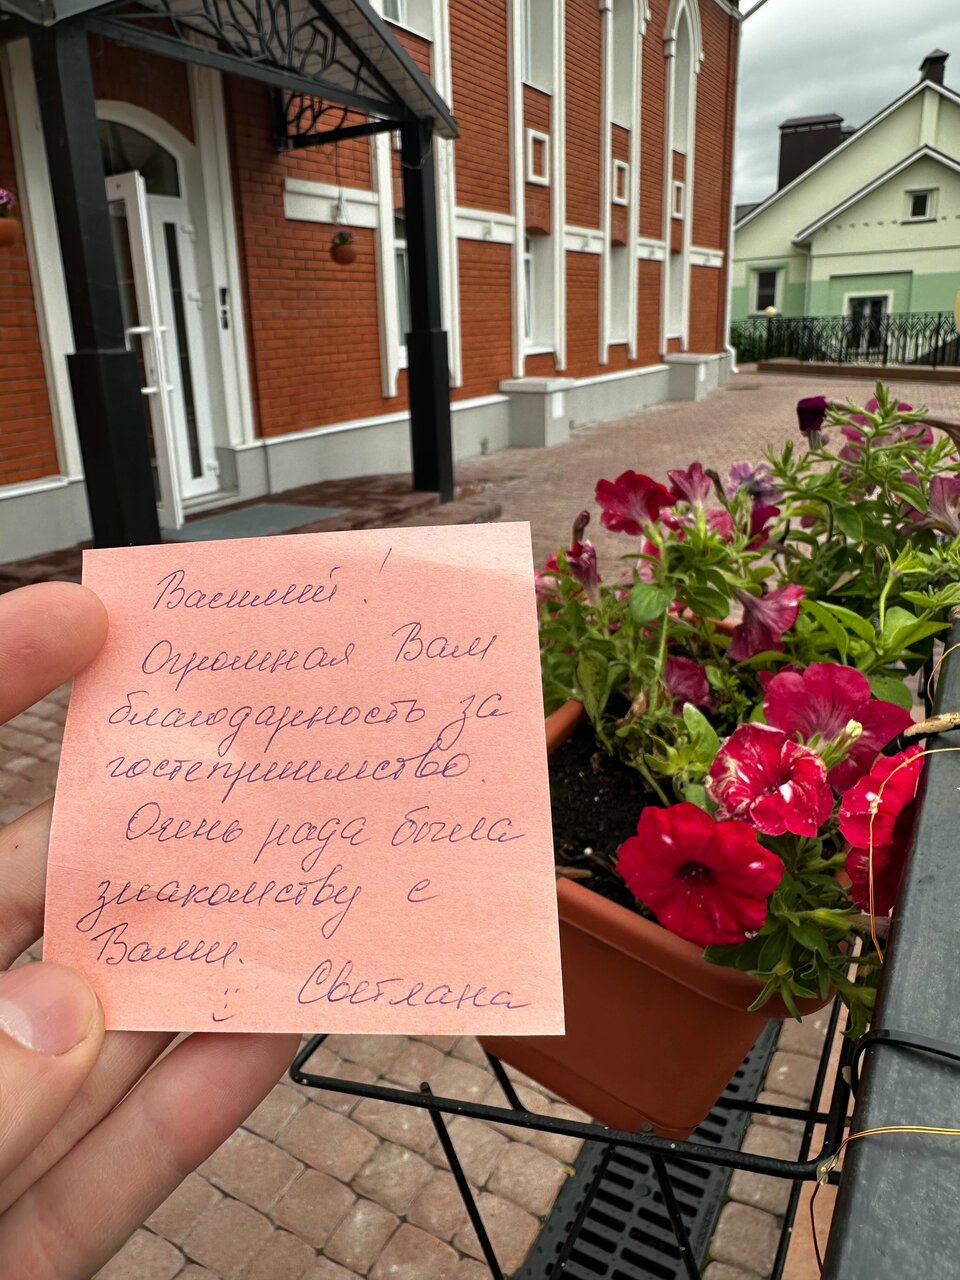 Василий!
Огромная Вам
благодарность за
гостеприимство.
Очень рада была
знакомству с
Вами.
:) Светлана